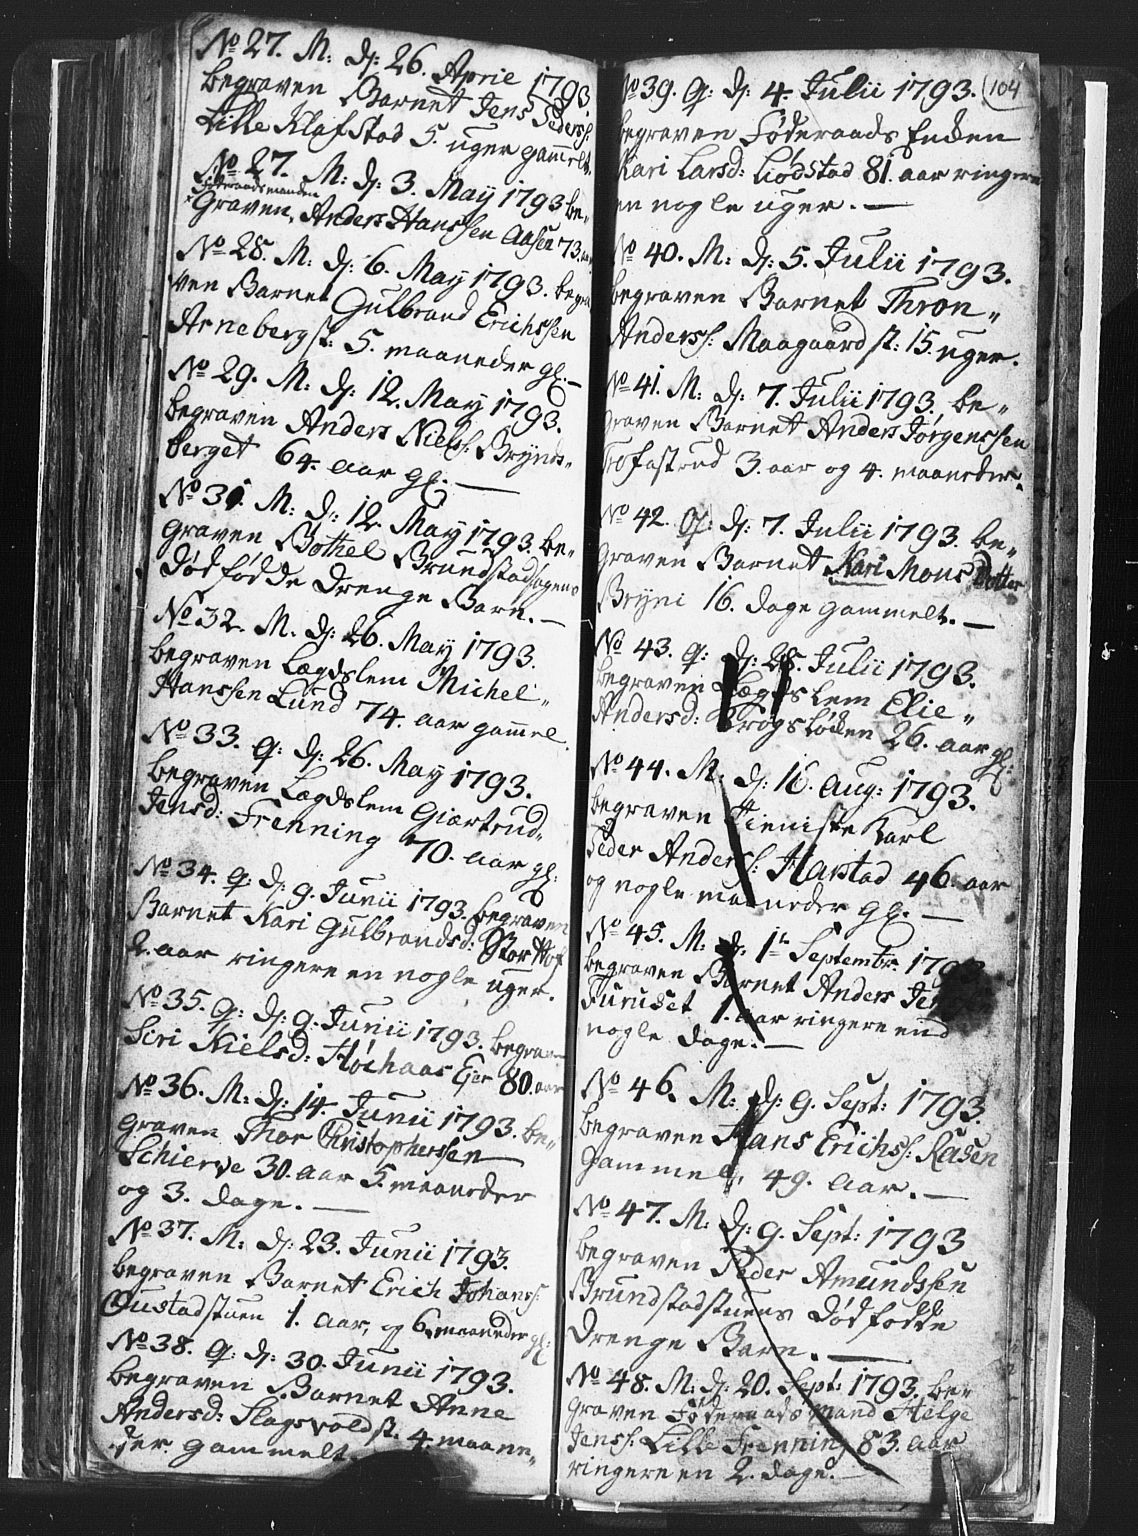 No 27. M: d: 26. April 1793
begraven Barnet Jens Peders:
Lille Klafstad 5. uger gammelt.
No 27. M: d: 3. May 1793 be„
Føderaadsmanden
graven, Anders Hanssen Aasen 73.
No 28. M: d: 6. May 1793. begra
ven Barnet Gulbrand Erichssen
Arnebergst: 5. maaneder gl. —
No 29. M: d: 12. May 1793.
begraven Anders Niels: Brynis„
berget 64. aar gl. —
No 31. M: d: 12. May 1793. be„
graven Bothel Brundstadhagens
dødfødde drenge Barn. —
No 32. M. d: 26. May 1793.
begraven Lægdslem Michel„
Hanssen Lund 74. aar gammel.
No 33. Q: d: 26. May 1793.
begraven Lagdslem Giærtrud„
Jensd: Frenning 70. aar gl:
No 34. Q: d: 9. Junii 1793. begraven
Barnet Kari Gulbrandsd: Stor Hof
2. aar ringere en nogle uger.
No 35. Q: d: 9. Junii 1793. begraven
Siri Nielsd: Høihaas Eier 80. aar
No 36. M: d: 14. Junii 1793. be„
graven Thor Christophersen
Schierve 30. aar 5. maaneder
og 3. dage. —
No 37. M: d: 23. Junii 1793.
begraven Barnet Erich Johans:
Gustadstuen 1. aar, og 6. maaneder gl:
No 38. Q: d: 30. Junii 1793.
begraven Barnet Anne
Andersd: Slagsvoldst. 4. maane„
der gammelt.
104
No 39. Q: d: 4. Julii 1793.
begraven Føderaads Enken
Kari Larsd: Lødstad 81. aar ringere
en nogle uger. —
No 40. M: d: 5. Julii 1793.
begraven Barnet Thron„
Anderss: Maagaard st: 15. uger.
No 41. M: d: 7. Julii 1793. be„
graven Barnet Anders Jørgenssen
Tofastrud 3. aar og 4. maaneder.
No 42. Q: d: 7. Julii 1793. be„
graven Barnet Kari Mons Dotter
Bryni 16. dage gammelt. —
No 43. Q: d: 28. Julii 1793.
begraven Lægdslem Elie„
Andersd: Krogsløkken 26. aar gl:
No 44. M: d: 16. Aug: 1793.
begraven Tieniste Karl
Peder Anders: Harstad 46. aar
og nogle maaneder gl. —
No 45. M: d: 1te Septembr: 1793
begraven Barnet Anders Jens
Furuset 1. aar ringere end
nogle dage. —
No 46. M: d: 9. Sept: 1793.
begraven Hans Erichs: Raasen
gammel, 49. aar. —
No 47. M: d: 9. Sept: 1793
begraven Peder Amundssen
Brundstadstuens dødfødde
drenge Barn. —
No 48. M: d: 20. Sept: 1793. be„
graven Føderaads Mand Helge
Jenss: Lille Frenning 83. aar
ringere en 2. dage. —